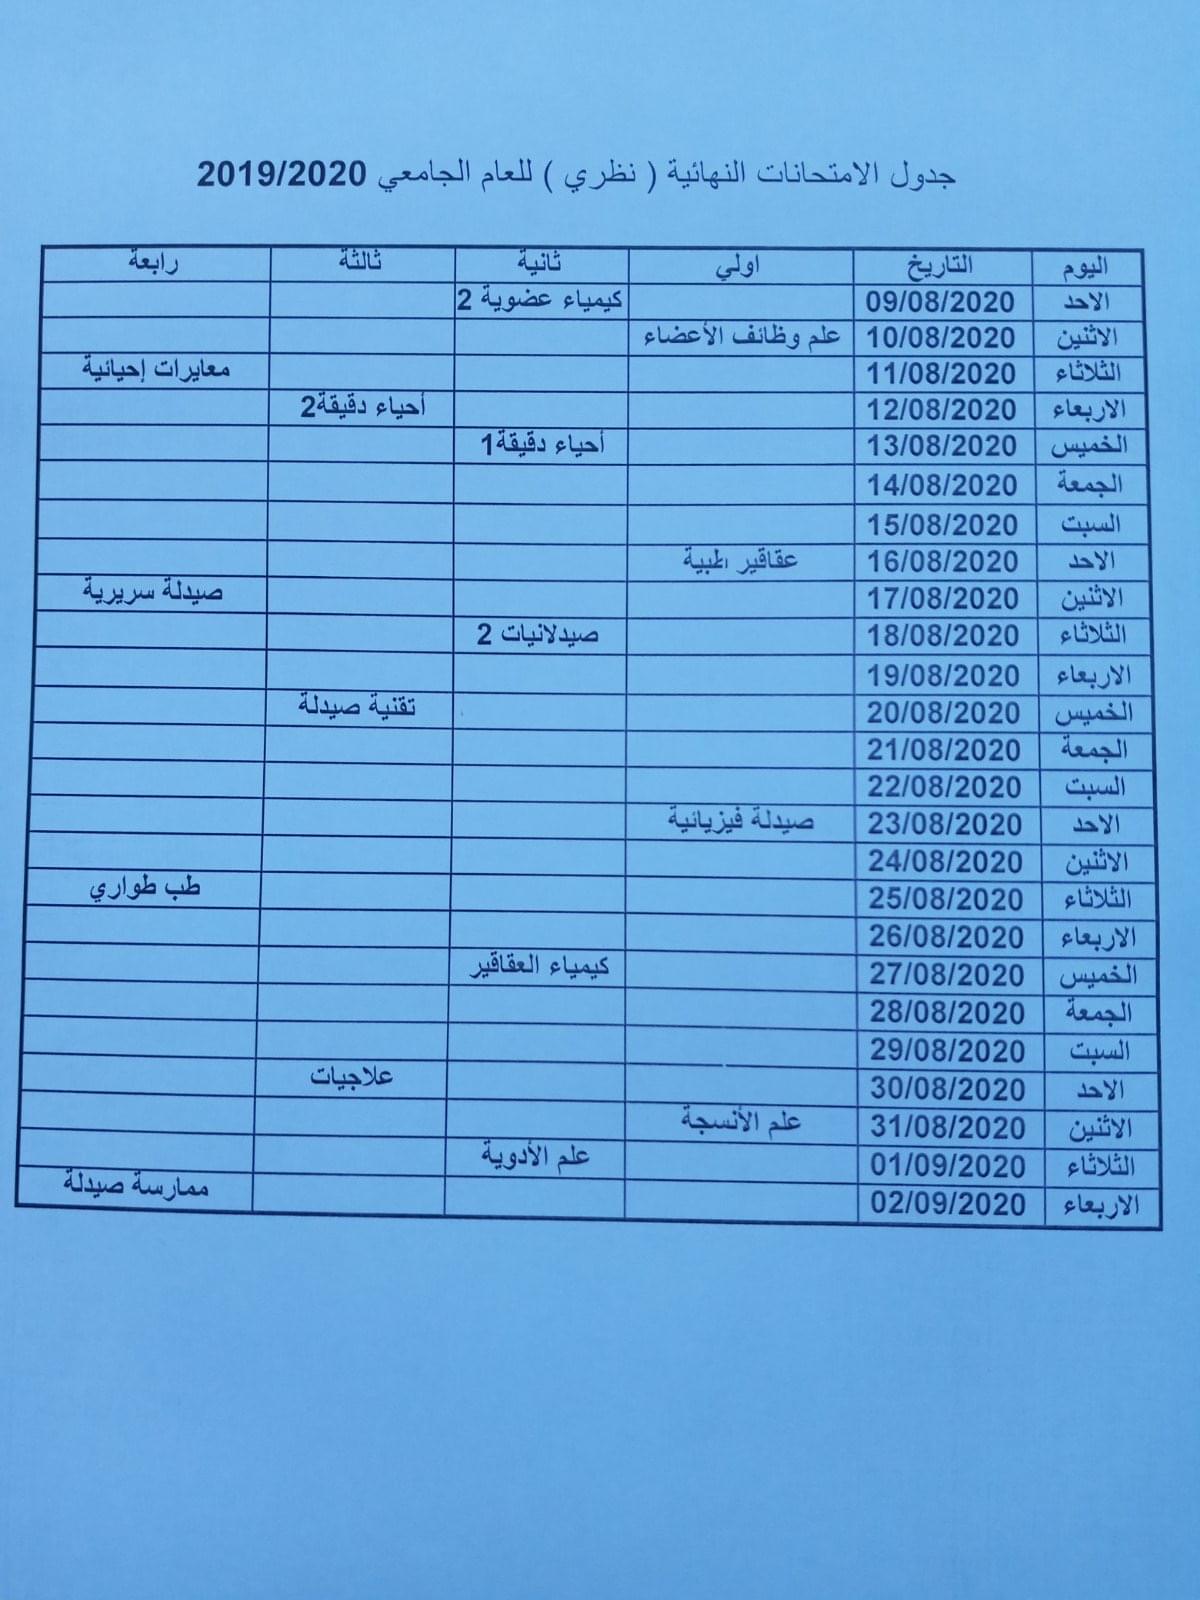 جدول الامتحانات النهائية ( نظري ) للعام الجامعي 2019/2020
اليوم التاريخ اولي ثانية ثالثة رابعة
الاحد 09/08/2020 كيمياء عضوية 2
الاثنين 10/08/2020 علم وظائف الأعضاء
الثلاثاء 11/08/2020 معايرات إحيائية
الاربعاء 12/08/2020 أحياء دقيقة2
الخميس 13/08/2020 أحياء دقيقة1
الجمعة 14/08/2020
السبت 15/08/2020
الاحد 16/08/2020 عقاقير طبية
الاثنين 17/08/2020 صيدلة سريرية
الثلاثاء 18/08/2020 صيدلانيات 2
الاربعاء 19/08/2020
الخميس 20/08/2020 تقنية صيدلة
الجمعة 21/08/2020
السبت 22/08/2020
الاحد 23/08/2020 صيدلة فيزيائية
الاثنين 24/08/2020
الثلاثاء 25/08/2020 طب طواري
الاربعاء 26/08/2020
الخميس 27/08/2020 كيمياء العقاقير
الجمعة 28/08/2020
السبت 29/08/2020
الاحد 30/08/2020 علاجيات
الاثنين 31/08/2020 علم الأنسجة
الثلاثاء 01/09/2020 علم الأدوية
الاربعاء 02/09/2020 ممارسة صيدلة